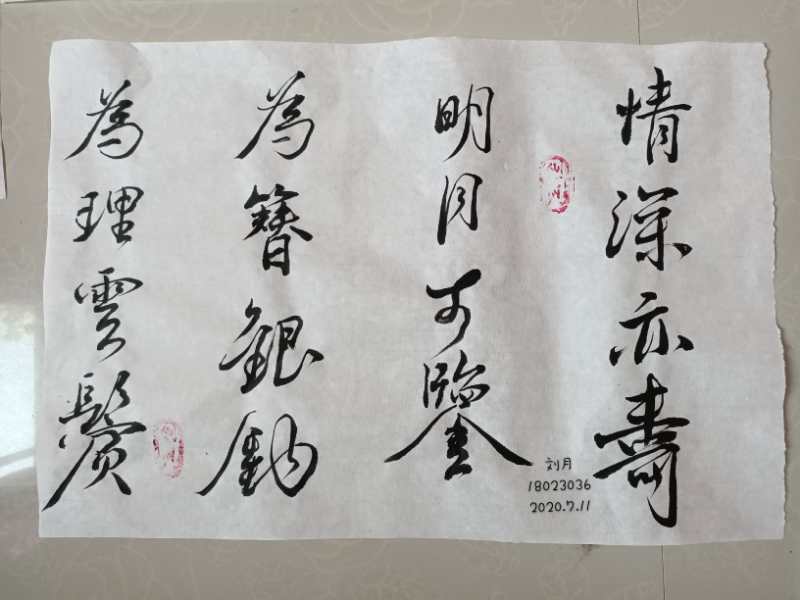 情深亦壽
明月可鑒
為簪銀鈎
為理雲鬢
刘月
18023036
2020.7.11